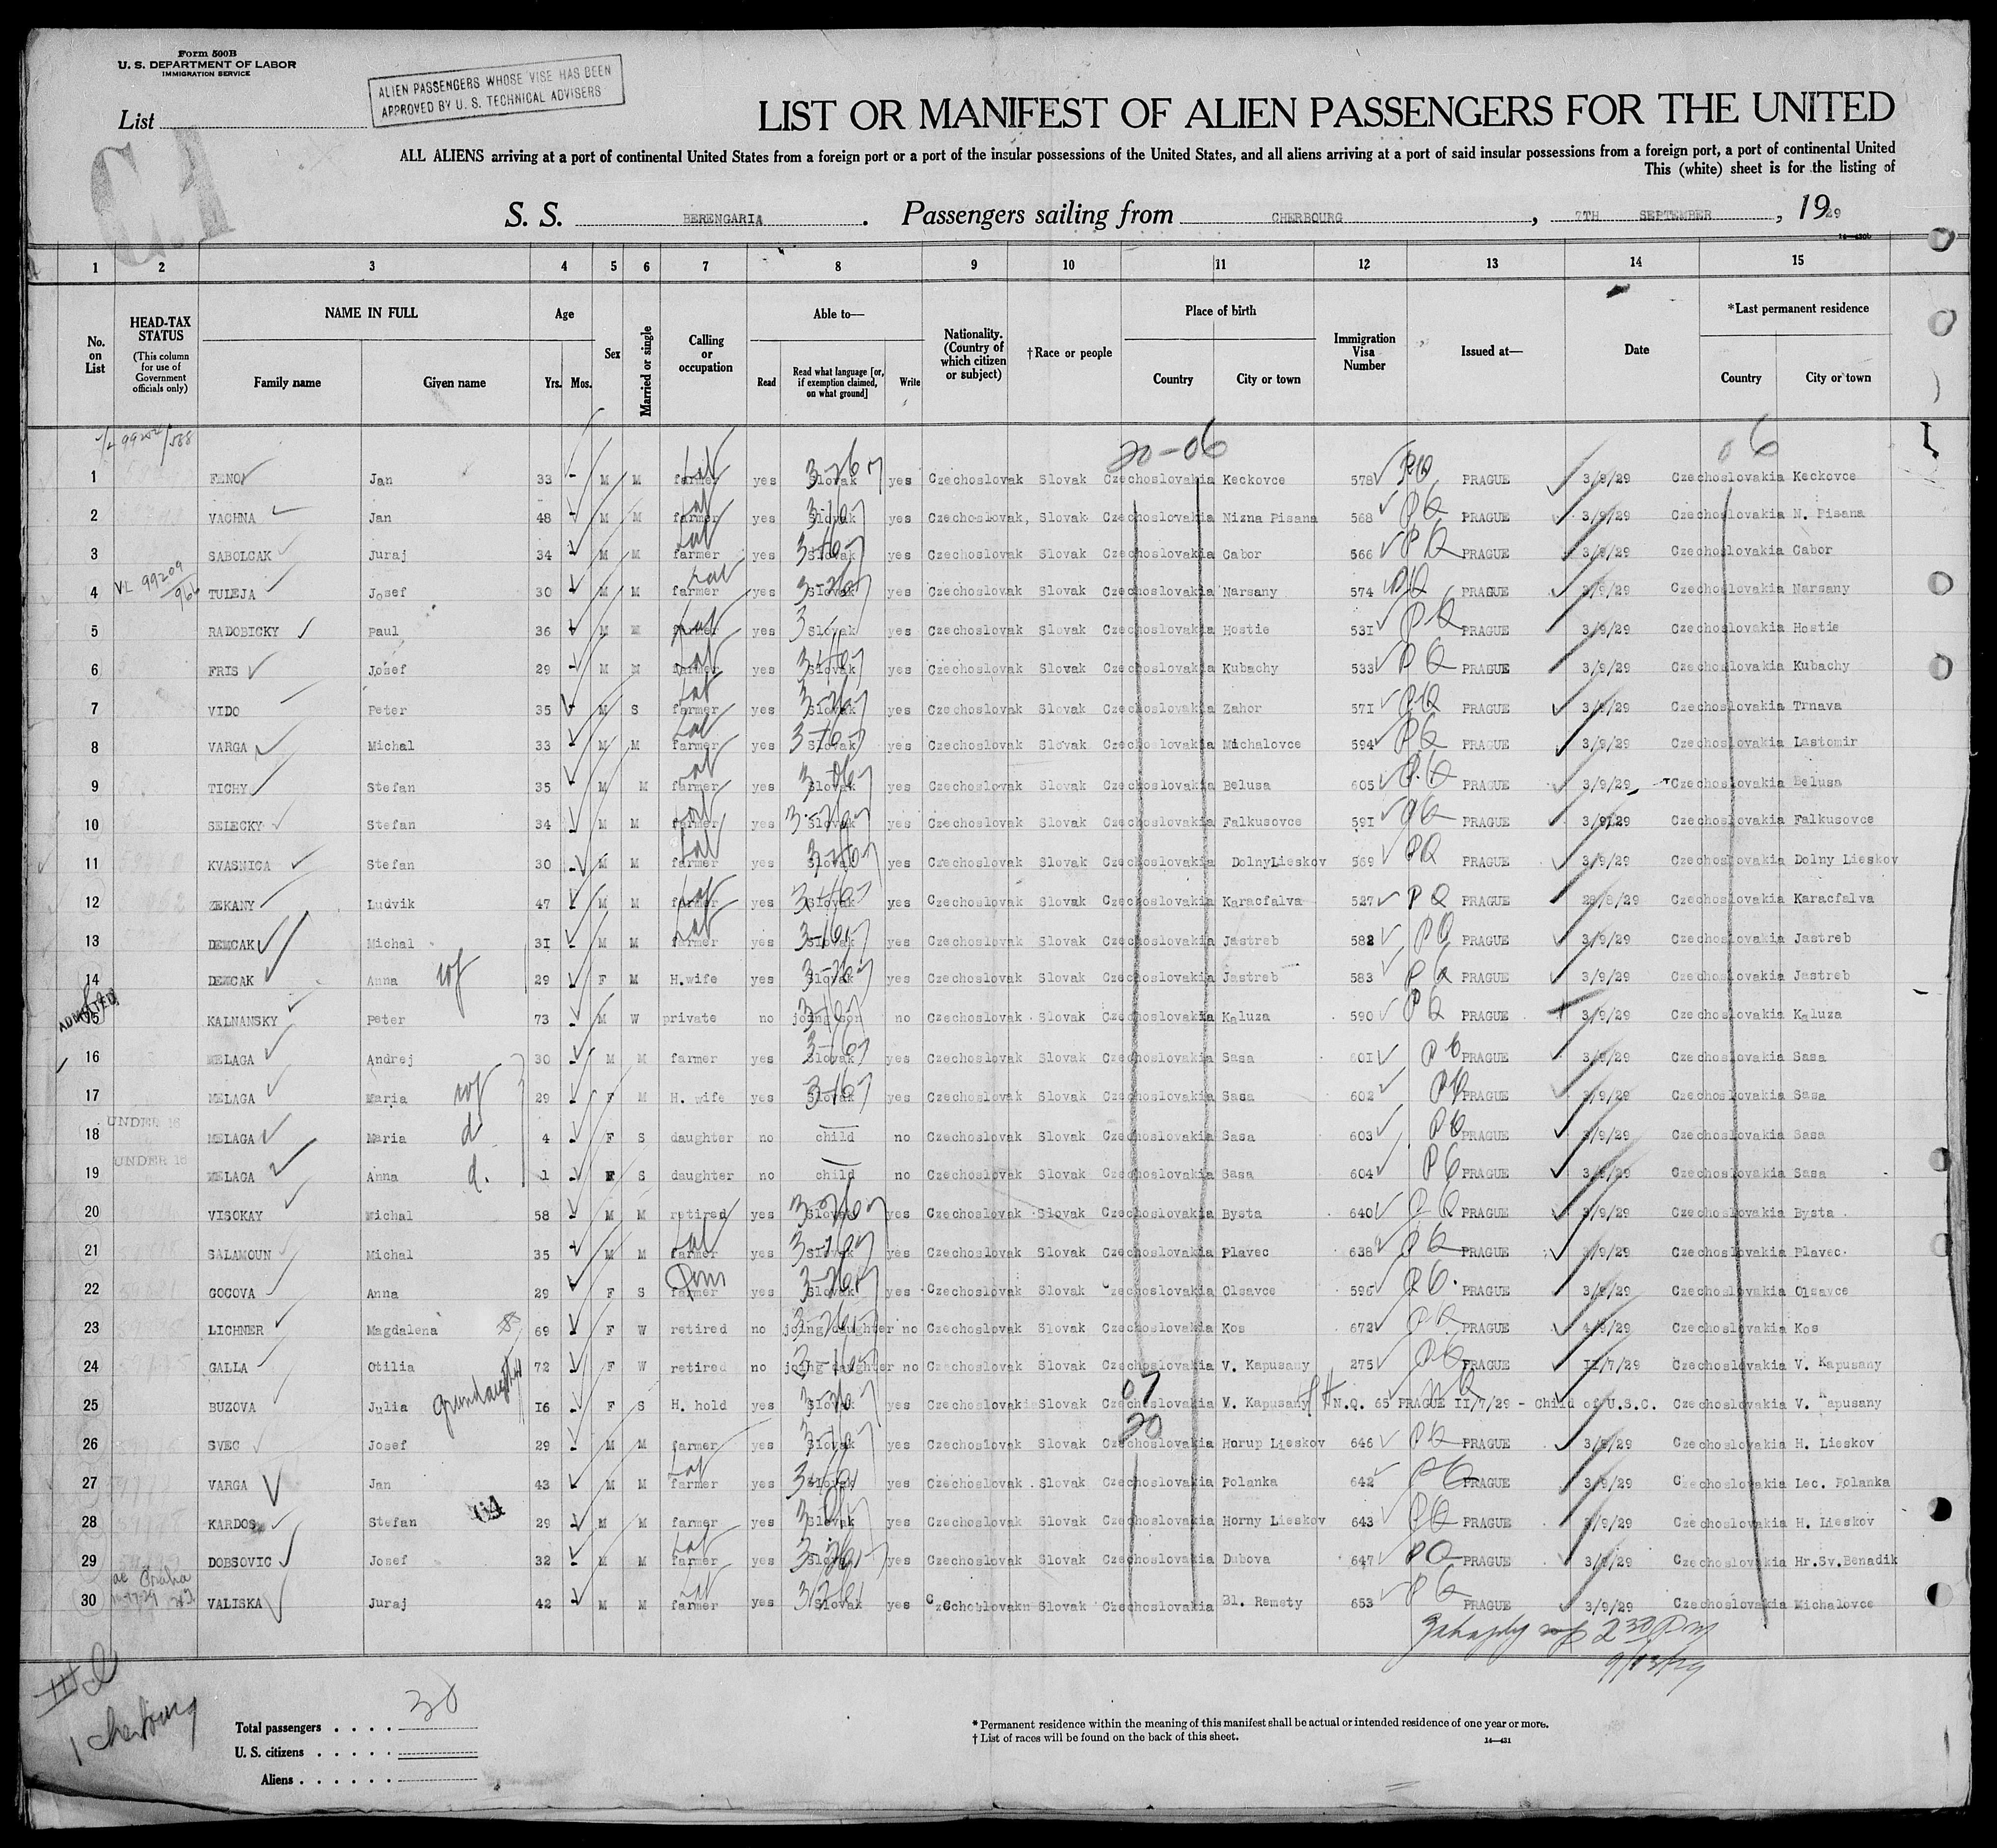 Form 500B
U. S. DEPARTMENT OF LABOR
IMMIGRATION SERVICE
ALIEN PASSENGERS WHOSE VISE HAS BEEN
APPROVED BY U. S. TECHNICAL ADVISERS
List
LIST OR MANIFEST OF ALIEN PASSENGERS FOR THE UNITED
ALL ALIENS arriving at a port of continental United States from a foreign port or a port of the insular possessions of the United States, and all aliens arriving at a port of said insular possessions from a foreign port, a port of continental United
This (white) sheet is for the listing of
S. S. BERENGARIA. Passengers sailing from CHERBOURG, 7TH SEPTEMBER, 1929
14—430b
1 2 3 4 5 6 7 8 9 10 11 12 13 14 15
No. on List
HEAD-TAX STATUS
(This column for use of Government officials only)
NAME IN FULL
Family name Given name
Age
Yrs. Mos.
Sex
Married or single
Calling or occupation
Able to—
Read Read what language [or, if exemption claimed, on what ground] Write
Nationality. (Country of which citizen or subject)
†Race or people
Place of birth
Country City or town
Immigration Visa Number
Issued at—
Date
*Last permanent residence
Country City or town
20-06 06
1 FENO Jan 33 - M M farmer yes Slovak yes Czechoslovak Slovak Czechoslovakia Keckovce 578 PQ PRAGUE 3/9/29 Czechoslovakia Keckovce
2 VACHNA Jan 48 - M M farmer yes Slovak yes Czechoslovak, Slovak Czechoslovakia Nizna Pisana 568 PQ PRAGUE 3/9/29 Czechoslovakia N. Pisana
3 SABOLCAK Juraj 34 - M M farmer yes Slovak yes Czechoslovak Slovak Czechoslovakia Cabor 566 PQ PRAGUE 3/9/29 Czechoslovakia Cabor
4 TULEJA Josef 30 - M M farmer yes Slovak yes Czechoslovak Slovak Czechoslovakia Narsany 574 PQ PRAGUE 3/9/29 Czechoslovakia Narsany
5 RADOBICKY Paul 36 - M M farmer yes Slovak yes Czechoslovak Slovak Czechoslovakia Hostie 531 PQ PRAGUE 3/9/29 Czechoslovakia Hostie
6 FRIS Josef 29 - M M farmer yes Slovak yes Czechoslovak Slovak Czechoslovakia Kubachy 533 PQ PRAGUE 3/9/29 Czechoslovakia Kubachy
7 VIDO Peter 35 - M S farmer yes Slovak yes Czechoslovak Slovak Czechoslovakia Zahor 571 PQ PRAGUE 3/9/29 Czechoslovakia Trnava
8 VARGA Michal 33 - M M farmer yes Slovak yes Czechoslovak Slovak Czechoslovakia Michalovce 594 PQ PRAGUE 3/9/29 Czechoslovakia Lastomir
9 TICHY Stefan 35 - M M farmer yes Slovak yes Czechoslovak Slovak Czechoslovakia Belusa 605 PQ PRAGUE 3/9/29 Czechoslovakia Belusa
10 SELECKY Stefan 34 - M M farmer yes Slovak yes Czechoslovak Slovak Czechoslovakia Falkusovce 591 PQ PRAGUE 3/9/29 Czechoslovakia Falkusovce
11 KVASNICA Stefan 30 - M M farmer yes Slovak yes Czechoslovak Slovak Czechoslovakia DolnyLieskov 569 PQ PRAGUE 3/9/29 Czechoslovakia Dolny Lieskov
12 ZEKANY Ludvik 47 - M M farmer yes Slovak yes Czechoslovak Slovak Czechoslovakia Karacfalva 527 PQ PRAGUE 28/8/29 Czechoslovakia Karacfalva
13 DEMCAK Michal 31 - M M farmer yes Slovak yes Czechoslovak Slovak Czechoslovakia Jastreb 582 PQ PRAGUE 3/9/29 Czechoslovakia Jastreb
14 DEMCAK Anna wf 29 - F M H.wife yes Slovak yes Czechoslovak Slovak Czechoslovakia Jastreb 583 PQ PRAGUE 3/9/29 Czechoslovakia Jastreb
ADMITTED
15 KALNANSKY Peter 73 - M W private no joing son no Czechoslovak Slovak Czechoslovakia Kaluza 590 PQ PRAGUE 3/9/29 Czechoslovakia Kaluza
16 MELAGA Andrej 30 - M M farmer yes Slovak yes Czechoslovak Slovak Czechoslovakia Sasa 601 PQ PRAGUE 3/9/29 Czechoslovakia Sasa
17 MELAGA Maria wf 29 - F M H. wife yes Slovak yes Czechoslovak Slovak Czechoslovakia Sasa 602 PQ PRAGUE 3/9/29 Czechoslovakia Sasa
UNDER 16
18 MELAGA Maria d 4 - F S daughter no child no Czechoslovak Slovak Czechoslovakia Sasa 603 PQ PRAGUE 3/9/29 Czechoslovakia Sasa
UNDER 16
19 MELAGA Anna d. 1 - F S daughter no child no Czechoslovak Slovak Czechoslovakia Sasa 604 PQ PRAGUE 3/9/29 Czechoslovakia Sasa
20 VISOKAY Michal 58 - M M retired yes Slovak yes Czechoslovak Slovak Czechoslovakia Bysta 640 PQ PRAGUE 3/9/29 Czechoslovakia Bysta
21 SALAMOUN Michal 35 - M M farmer yes Slovak yes Czechoslovak Slovak Czechoslovakia Plavec 638 PQ PRAGUE 3/9/29 Czechoslovakia Plavec
22 GOCOVA Anna 29 F S farmer yes Slovak yes Czechoslovak Slovak Czechoslovakia Olsavce 596 PQ PRAGUE 3/9/29 Czechoslovakia Olsavce
23 LICHNER Magdalena 69 - F W retired no joing daughter no Czechoslovak Slovak Czechoslovakia Kos 672 PQ PRAGUE 4/9/29 Czechoslovakia Kos
24 GALLA Otilia 72 - F W retired no joing daughter no Czechoslovak Slovak Czechoslovakia V. Kapusany 275 PQ PRAGUE 11/7/29 Czechoslovakia V. Kapusany
07
25 BUZOVA Julia grandaughter 16 - F S H. hold yes Slovak yes Czechoslovak Slovak Czechoslovakia V. Kapusany N.Q. 65 PRAGUE 11/7/29 - Child of U.S.C. Czechoslovakia V. Kapusany
20
26 SVEC Josef 29 - M M farmer yes Slovak yes Czechoslovak Slovak Czechoslovakia Horup Lieskov 646 PQ PRAGUE 3/9/29 Czechoslovakia H. Lieskov
27 VARGA Jan 43 - M M farmer yes Slovak yes Czechoslovak Slovak Czechoslovakia Polanka 642 PQ PRAGUE 3/9/29 Czechoslovakia Lec. Polanka
28 KARDOS Stefan 29 - M M farmer yes Slovak yes Czechoslovak Slovak Czechoslovakia Horny Lieskov 643 PQ PRAGUE 3/9/29 Czechoslovakia H. Lieskov
29 DOBSOVIC Josef 32 - M M farmer yes Slovak yes Czechoslovak Slovak Czechoslovakia Dubova 647 PQ PRAGUE 3/9/29 Czechoslovakia Hr.Sv.Benadik
30 VALISKA Juraj 42 - M M farmer yes Slovak yes Slovak Czechoslovakia Bl. Remety 653 PQ PRAGUE 3/9/29 Czechoslovakia Michalovce
2 30 PM
9/13/29
Cherbourg
Total passengers 30
U. S. citizens
Aliens
* Permanent residence within the meaning of this manifest shall be actual or intended residence of one year or more.
† List of races will be found on the back of this sheet.
14—431